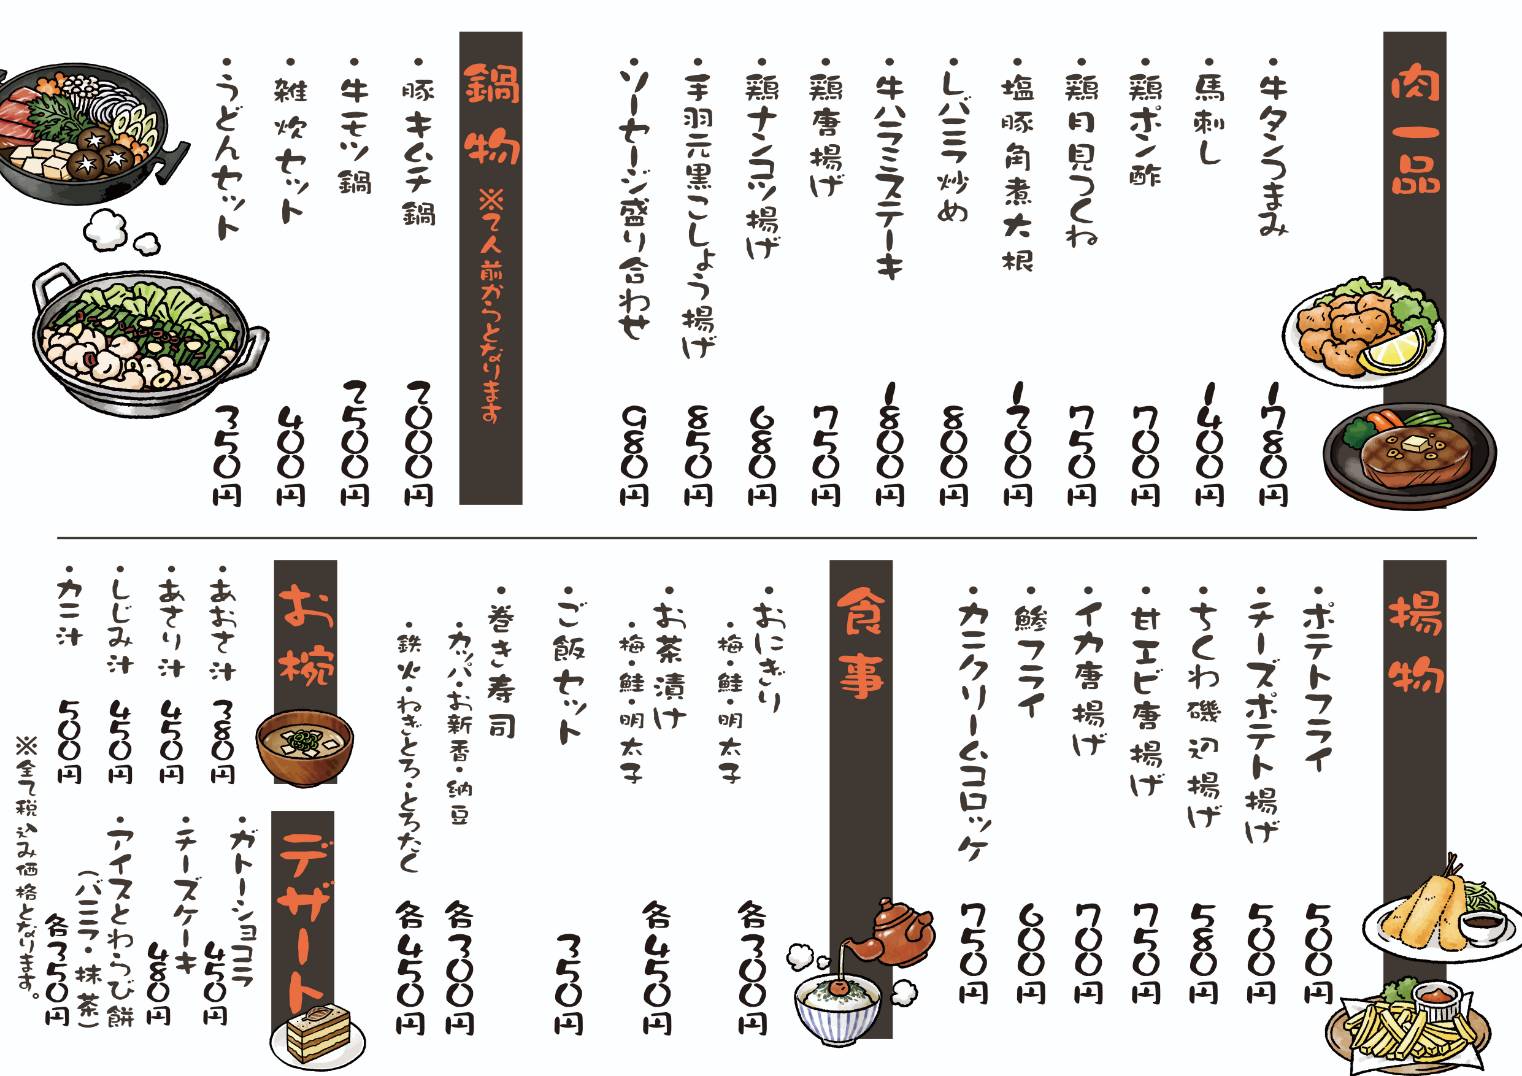 肉一品
・牛タンつまみ 1780円
・馬刺し 1400円
・鶏ポン酢 700円
・鶏月見つくね 750円
・塩豚角煮大根 1200円
・レバニラ炒め 800円
・牛ハラミステーキ 1800円
・鶏唐揚げ 750円
・鶏ナンコツ揚げ 680円
・手羽元黒こしょう揚げ 850円
・ソーセージ盛り合わせ 980円
鍋物 ※2人前からとなります
・豚キムチ鍋 2000円
・牛モツ鍋 2500円
・雑炊セット 400円
・うどんセット 350円
揚物
・ポテトフライ 500円
・チーズポテト揚げ 500円
・ちくわ磯辺揚げ 580円
・甘エビ唐揚げ 750円
・イカ唐揚げ 700円
・鯵フライ 600円
・カニクリームコロッケ 750円
食事
・おにぎり
・梅・鮭・明太子 各300円
・お茶漬け
・梅・鮭・明太子 各450円
・ご飯セット 350円
・巻き寿司
・カッパ・お新香・納豆 各300円
・鉄火・ねぎとろ・とろたく 各450円
お椀
・あおさ汁 380円
・あさり汁 450円
・しじみ汁 450円
・カニ汁 500円
デザート
・ガトーショコラ 450円
・チーズケーキ 480円
・アイスとわらび餅
（バニラ・抹茶） 各350円
※全て税込み価格となります。